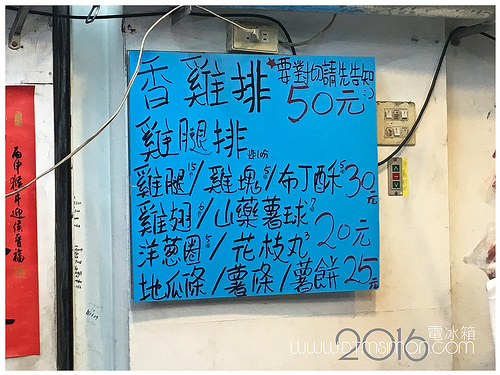 丙申猴年迎侯晉福
★要對切請先告知:)
香雞排 50元
雞腿排
雞腿15/雞塊5/布丁酥5 30元
雞翅/山藥薯球7
洋蔥圈5/花枝丸3 20元
地瓜條/薯條/薯餅 25元
2016 電冰箱
www.DTMSimon.com